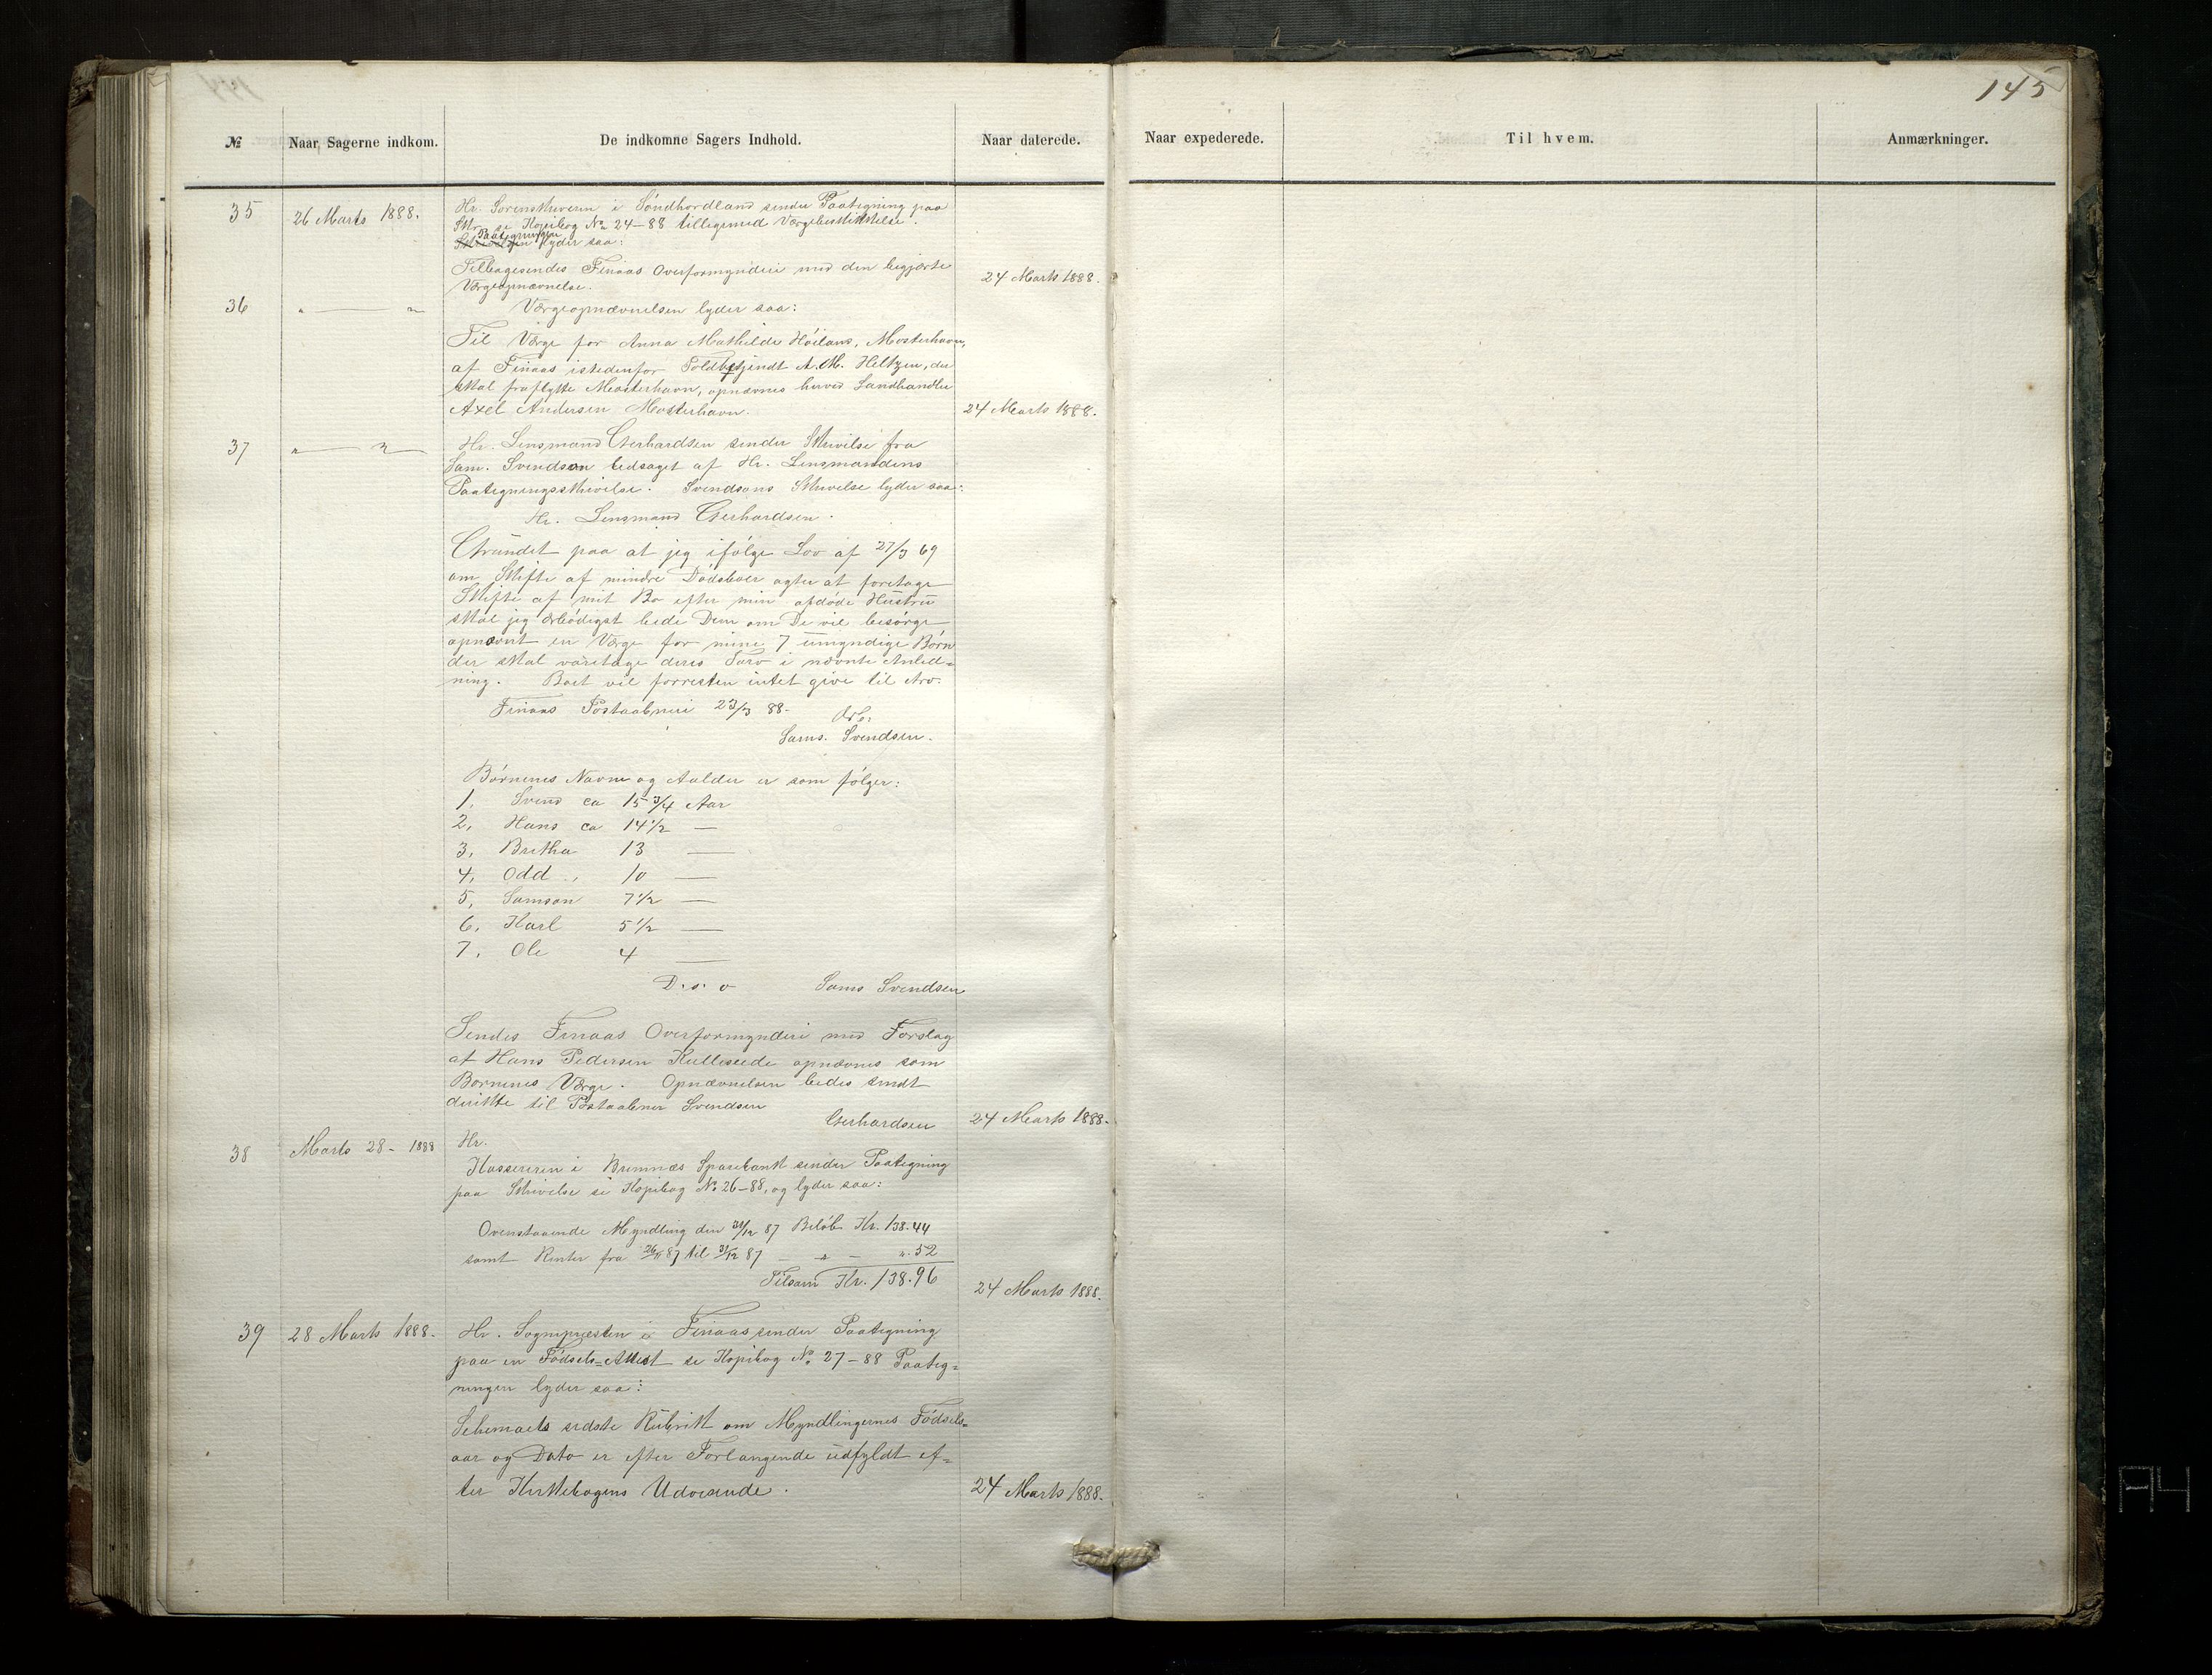 145
№ Naar Sagerne indkom. De indkomne Sagers Indhold. Naar daterede. Naar expederede. Til hvem. Anmærkninger.
35 26 Marts 1888. Hr. Sorenskriveren i Søndhordland sender Paategning paa
Skr. se Kopibog No 24-88 tilligemed Værgebeskikkelse.
Paategningen
Skrivelsen lyder saa:
Tilbagesendes Finaas Overformynderi med den begjærte
Værgeopnævnelse. 24 Marts 1888.
36 " — " Værgeopnævnelsen lyder saa:
Til Værge for Anna Mathilde Høiland, Mosterhavn,
af Finaas istedenfor Toldbetjendt A. M. Heltzen, der
skal fraflytte Mosterhavn, opnævnes herved Landhandler
Axel Andersen Mosterhavn. 24 Marts 1888.
37 " — " Hr. Lensmand Gerhardsen sender Skrivelse fra
Sam. Svendsen ledsaget af Hr. Lensmandens
Paategningsskrivelse. Svendsens Skrivelse lyder saa:
Hr. Lensmand Gerhardsen.
Grundet paa at jeg ifølge Lov af 27/3 69
om Skifte af mindre Dødsboer agter at foretage
Skifte af mit Bo efter min afdøde Hustru
skal jeg ærbødigst bede Dem om De vil besørge
opnævnt en Værge for mine 7 umyndige Børn
der skal varetage deres Tarv i nævnte Anled=
ning. Boet vil forresten intet give til Arv.
Finaas Postaabneri 23/3 88.
Ærb.
Sams. Svendsen.
Børnenes Navn og Aalder er som følger:
1, Svend ca 15 3/4 Aar
2, Hans ca 14 1/2 —
3, Britha 13 —
4, Odd " 10 —
5, Samson 7 1/2 —
6, Karl 5 1/2 —
7, Ole 4 —
D. s. o Sams Svendsen
Sendes Finaas Overformynderi med Forslag
at Hans Pedersen Kulleseide opnævnes som
Børnenes Værge. Opnævnelsen bedes sendt
direkte til Postaabner Svendsen
Gerhardsen 24 Marts 1888.
38 Marts 28 - 1888 Hr.
Kassereren i Bremnæs Sparebank sender Paategning
paa Skrivelse se Kopibog No 26-88, og lyder saa:
Ovenstaaende Myndling den 31/12 87 Beløb Kr. 138.44
samt Renter fra 26/11 87 til 31/12 87 — " — ".52
Tilsam Kr. 138.96 24 Marts 1888.
39 28 Marts 1888. Hr. Sognepræsten i Finaas sender Paategning
paa en Fødsels=Attest se Kopibog No. 27-88 Paateg=
ningen lyder saa:
Schemaets sidste Rubrik om Myndlingernes Fødsels=
aar og Dato er efter Forlangende udfyldt ef=
ter Kirkebogens Udvisende. 24 Marts 1888.